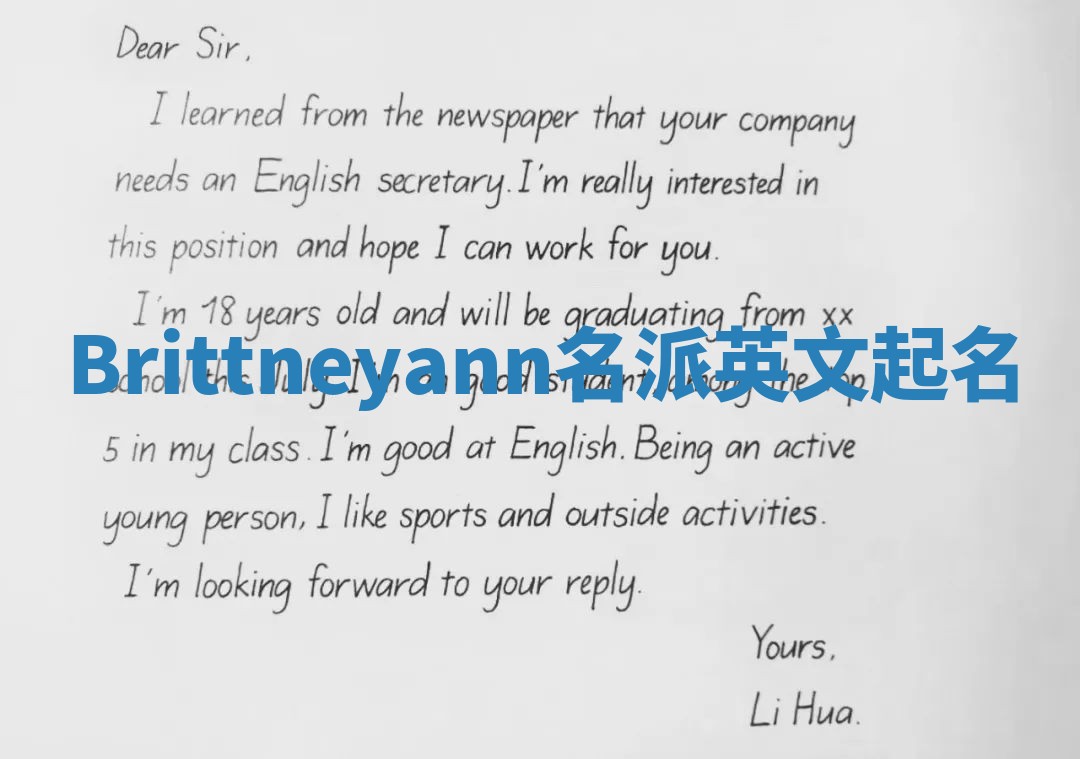 Dear Sir,
I learned from the newspaper that your company
needs an English secretary. I'm really interested in
this position and hope I can work for you.
I'm 18 years old and will be graduating from xx
Brittneyann名派英文起名
school this July. I'm a good student, among the top
5 in my class. I'm good at English. Being an active
young person, I like sports and outside activities.
I'm looking forward to your reply.
Yours,
Li Hua.